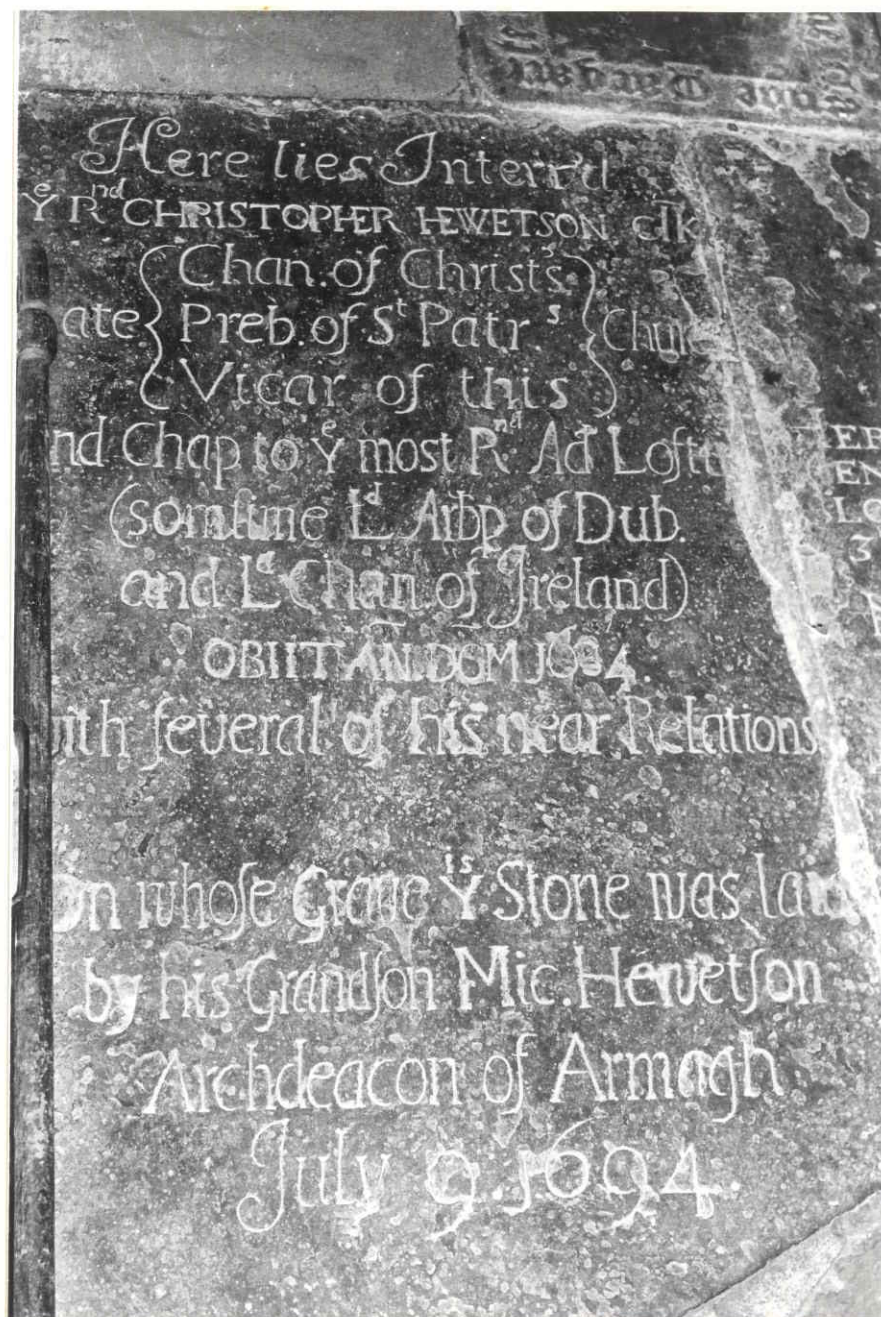 Here lies Interr'd
Yᵉ Rⁿᵈ CHRISTOPHER HEWETSON clk
Chan. of Christ's
ate Preb. of Sᵗ Patr.ˢ
Vicar of this
nd Chap to Yᵉ most Rⁿᵈ Ad Loft
(somtime Lᵈ Arbp of Dub.
and Lᵈ Chan. of Ireland)
OBIIT AN. DOM 1634.
ith ſeveral of his near Relations
On whoſe Grave Yⁱˢ Stone was laid
by his Grandſon Mic. Hewetſon
Archdeacon of Armagh
July 9 1694.